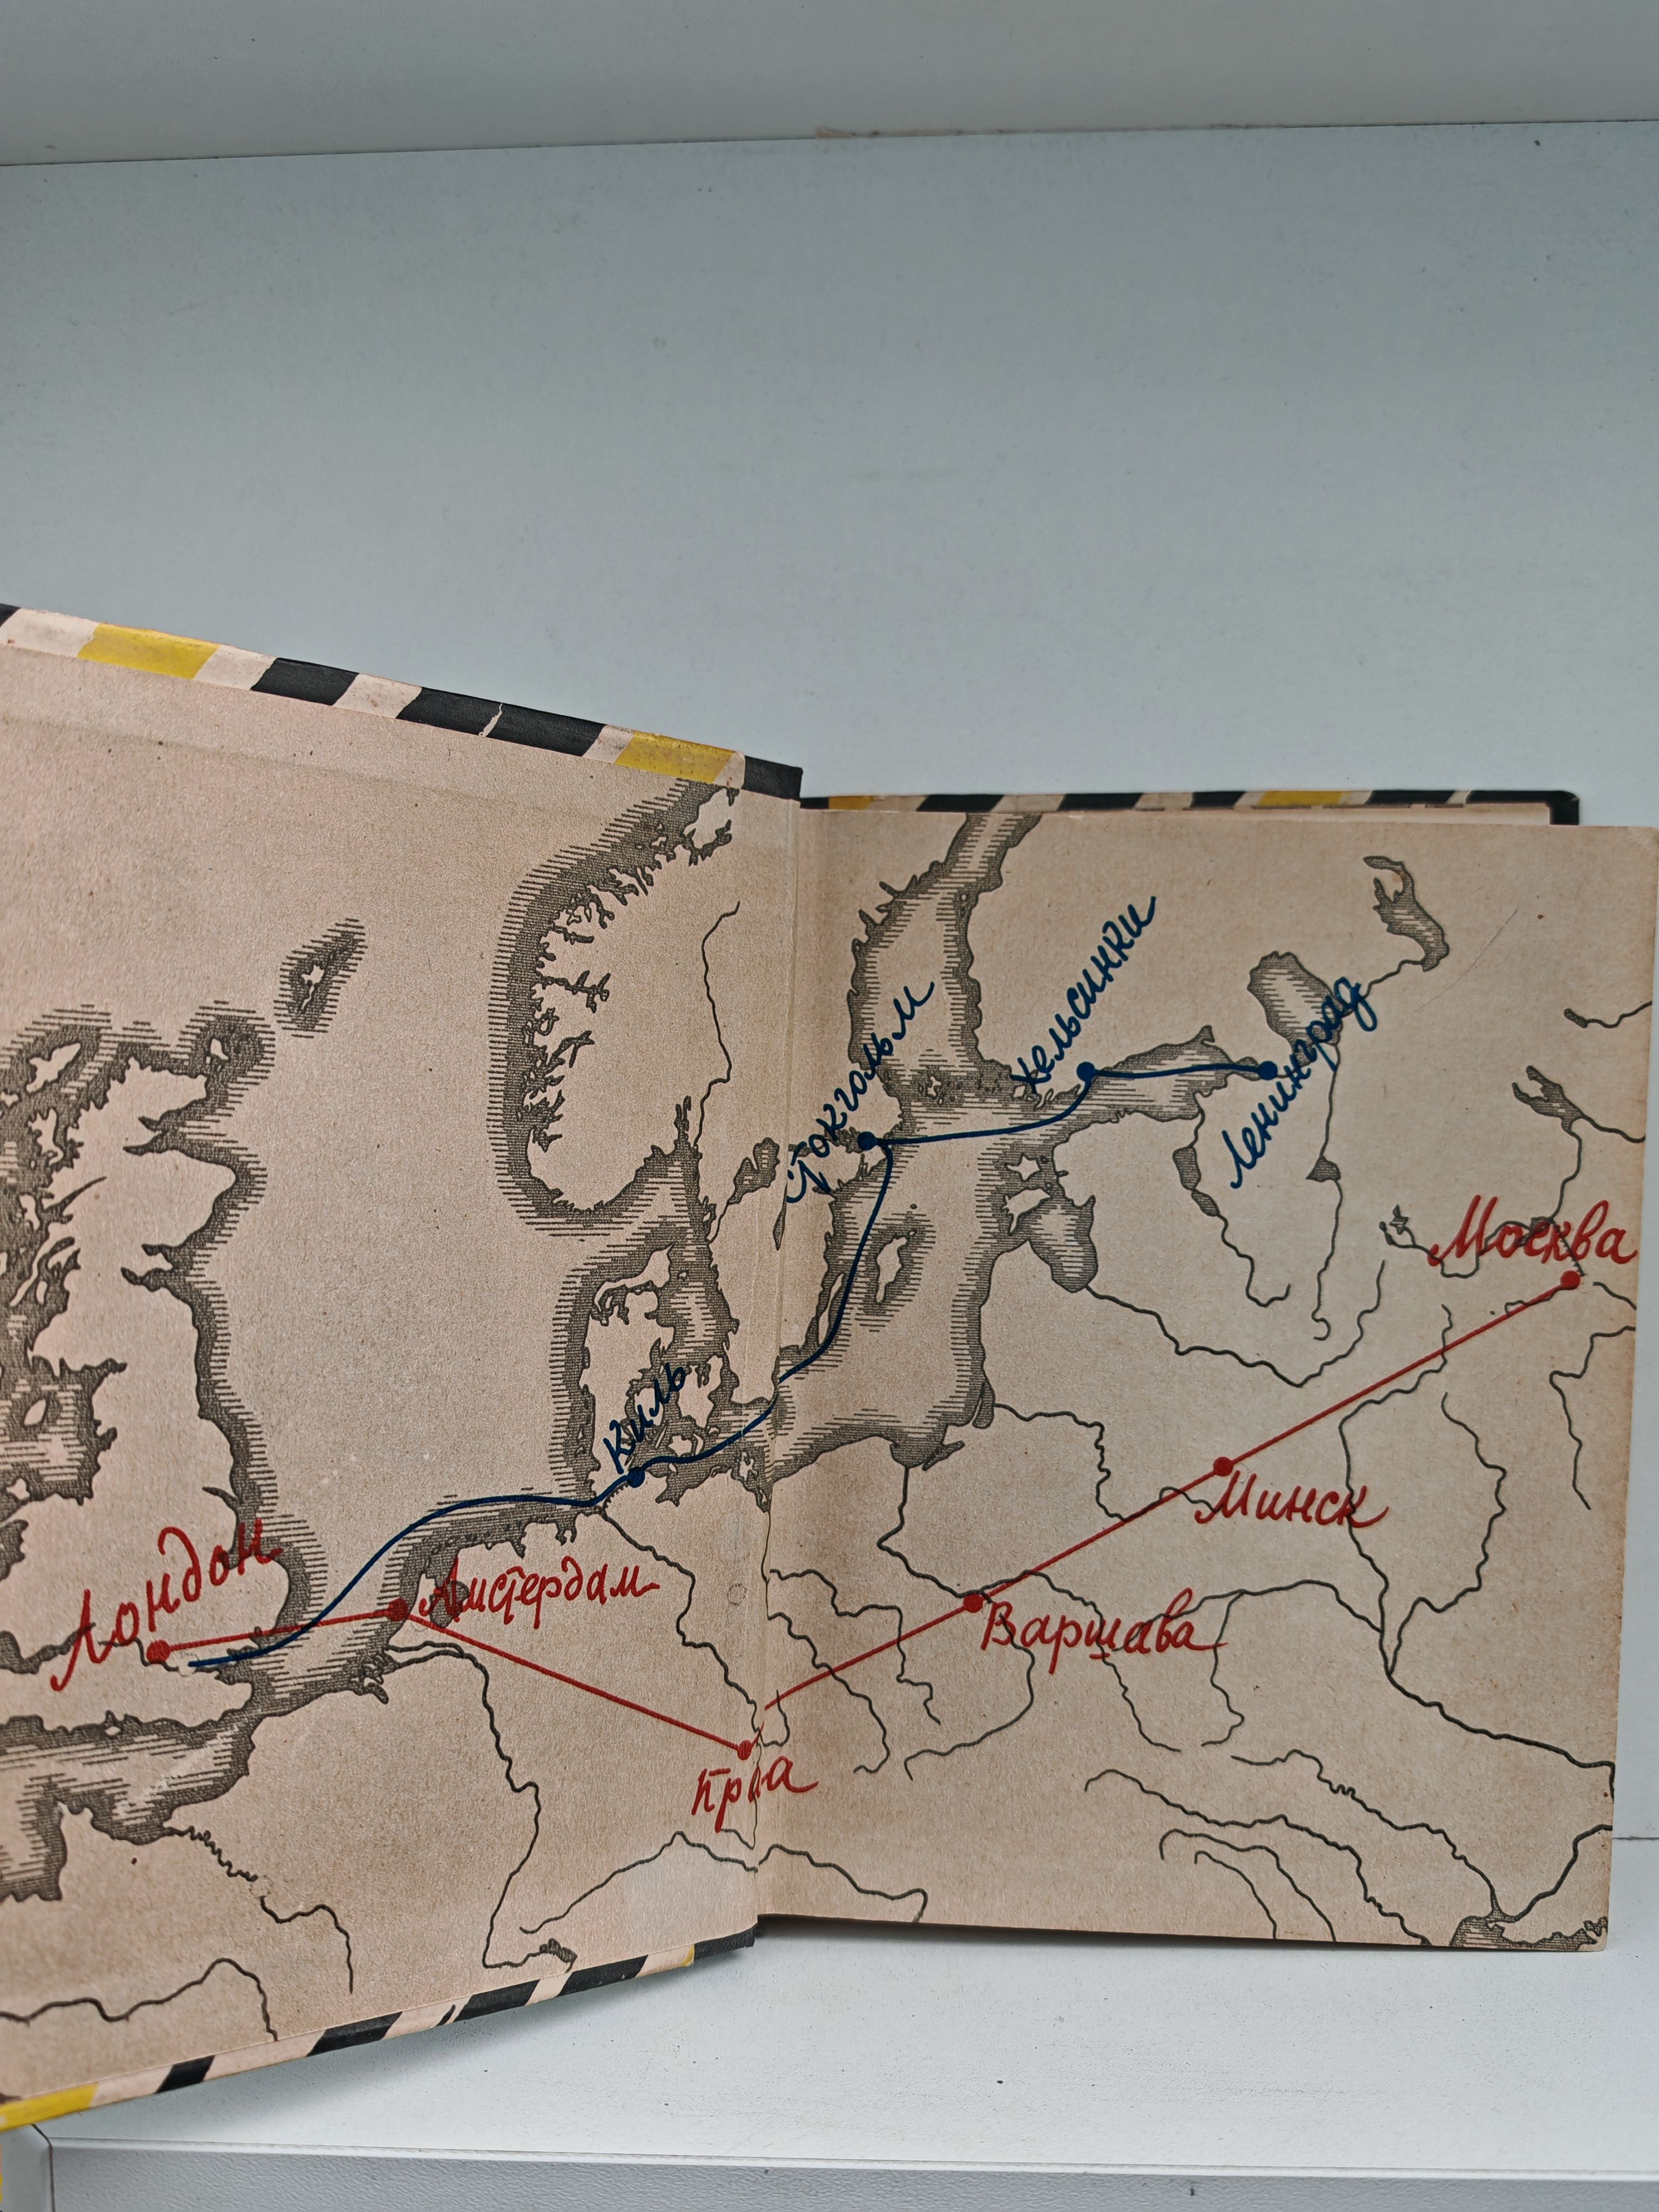 Хельсинки
Стокгольм
Ленинград
Москва
Киль
Минск
Лондон
Амстердам
Варшава